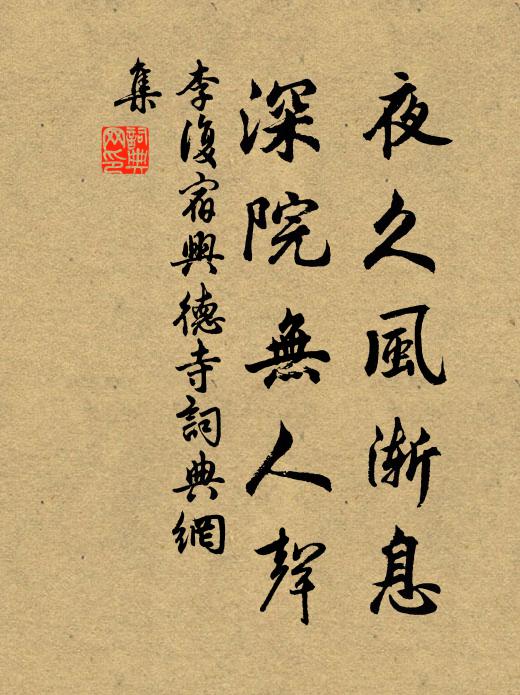 夜久風漸息
深院無人聲
李復宿興德寺詞典網
集
詞典
网印